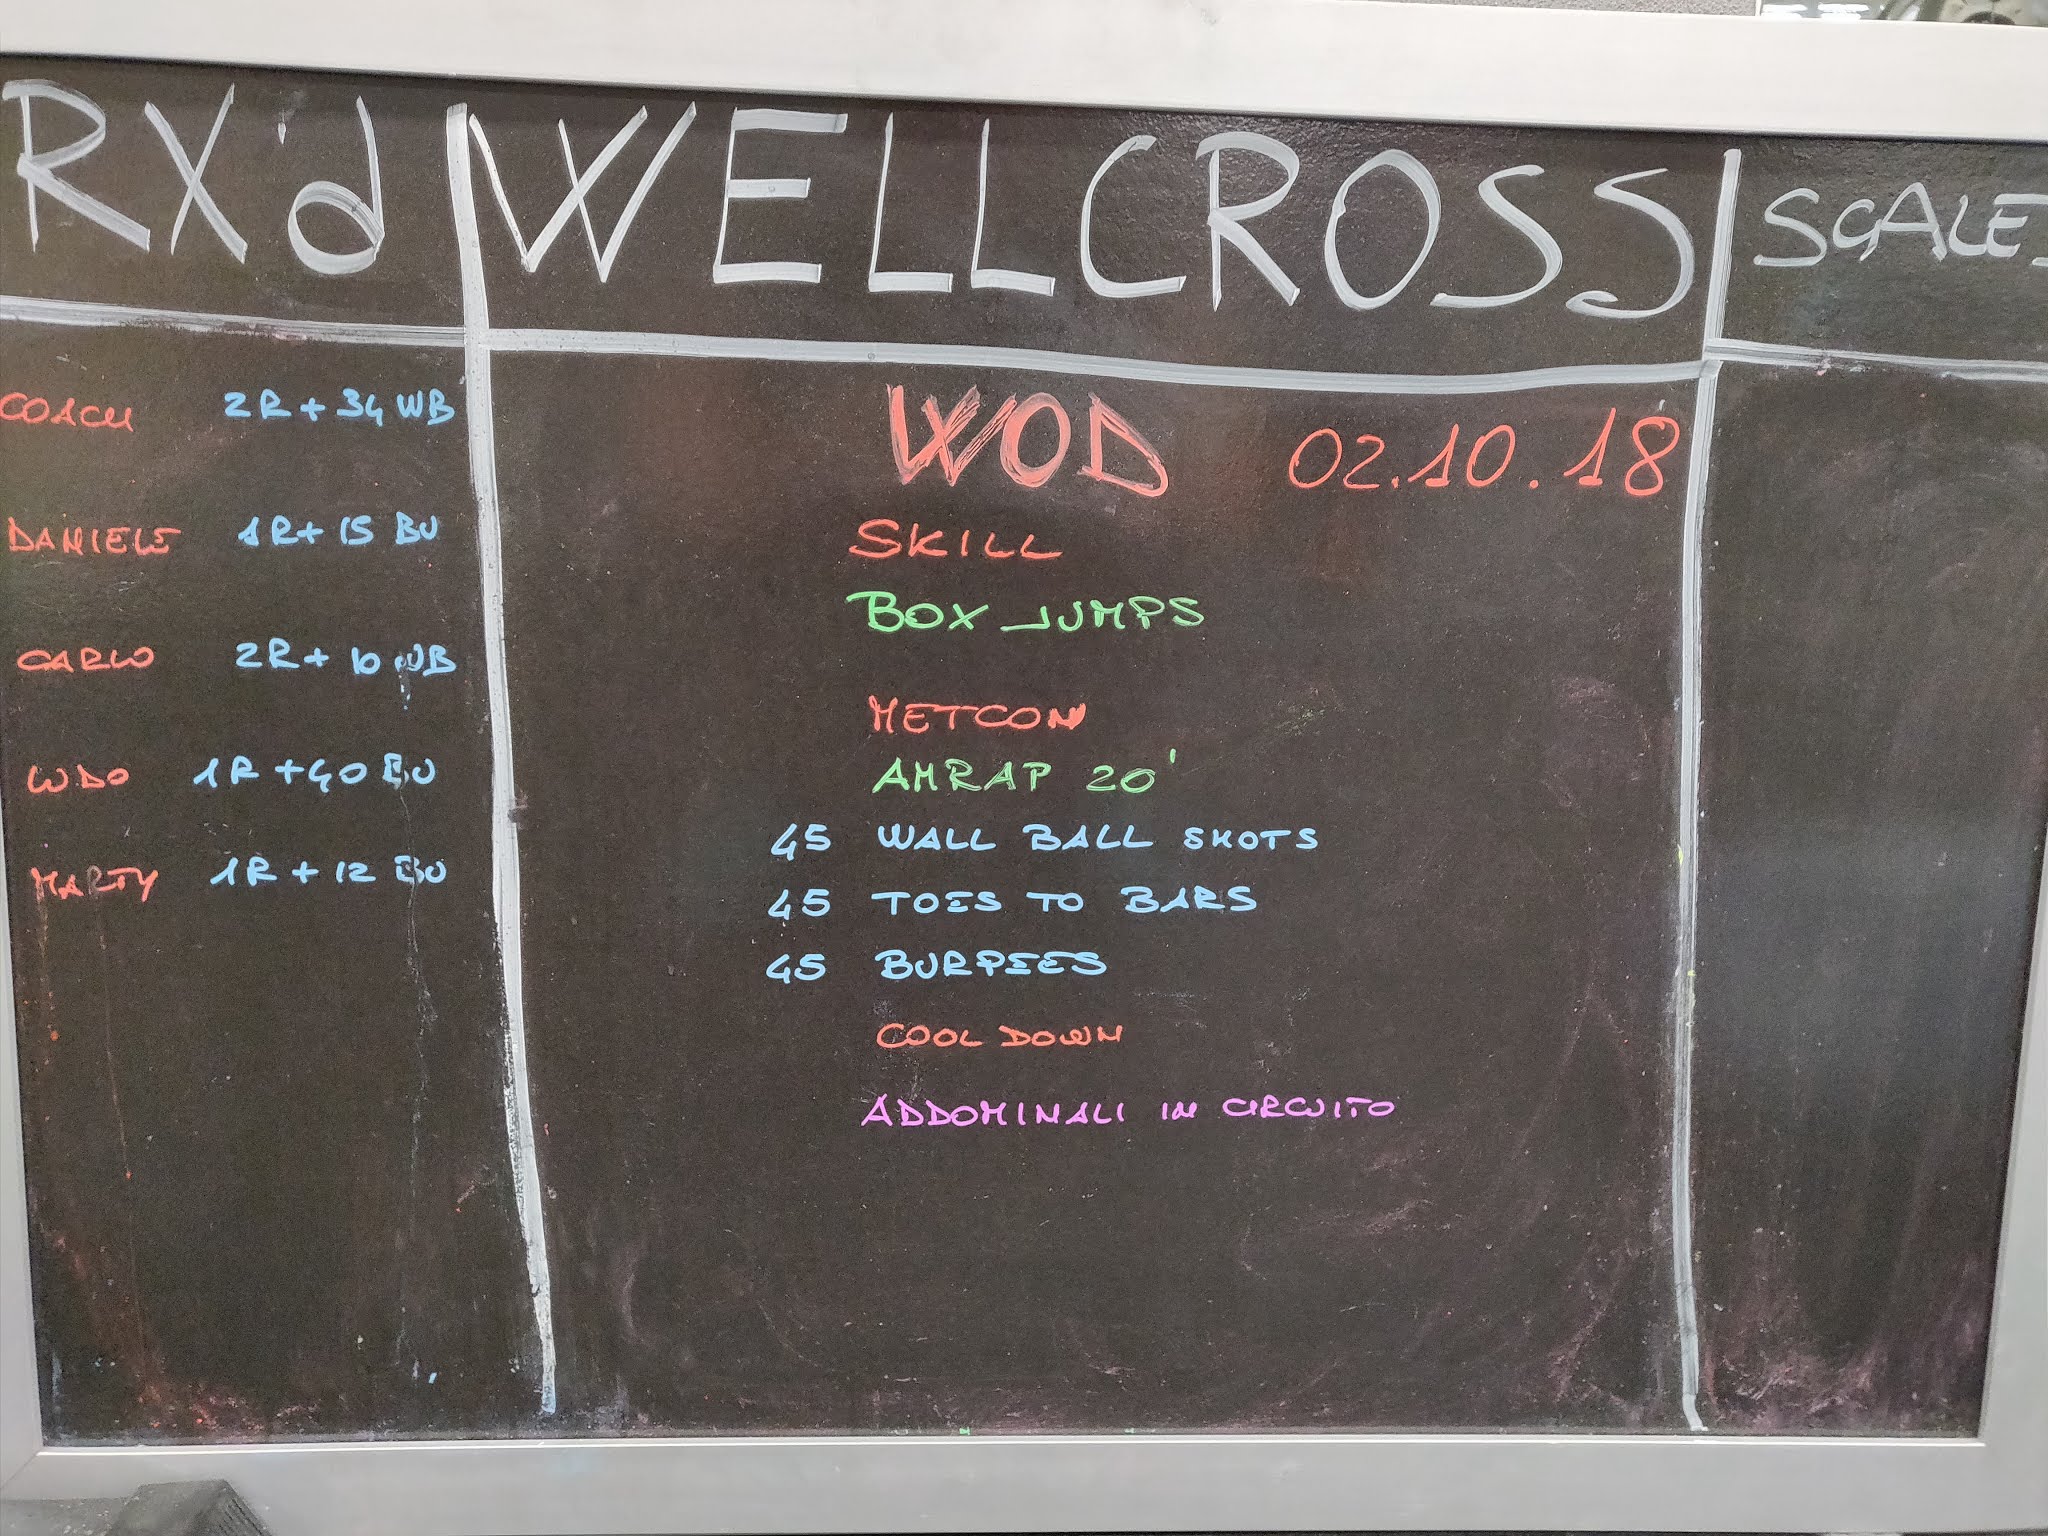 RX'd
WELLCROSS
SCALE
COACH 2R + 34 WB
DANIELE 1R + 15 BU
CARLO 2R + 10 WB
UDO 1R + 40 BU
MARTY 1R + 12 BU
WOD 02.10.18
SKILL
BOX JUMPS
METCON
AMRAP 20'
45 WALL BALL SHOTS
45 TOES TO BARS
45 BURPEES
COOL DOWN
ADDOMINALI IN CIRCUITO